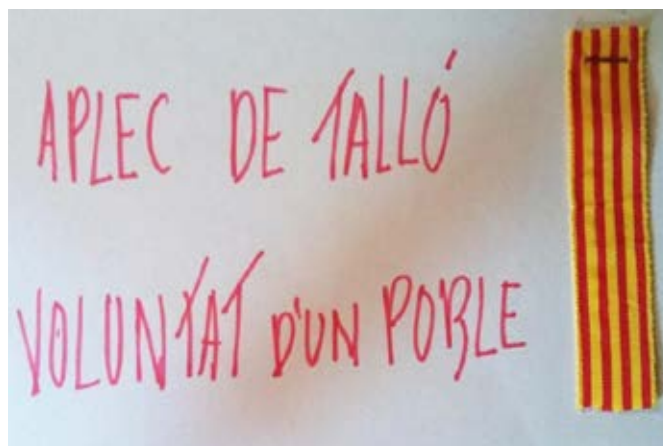 APLEC DE TALLÓ
VOLUNTAT D'UN POBLE